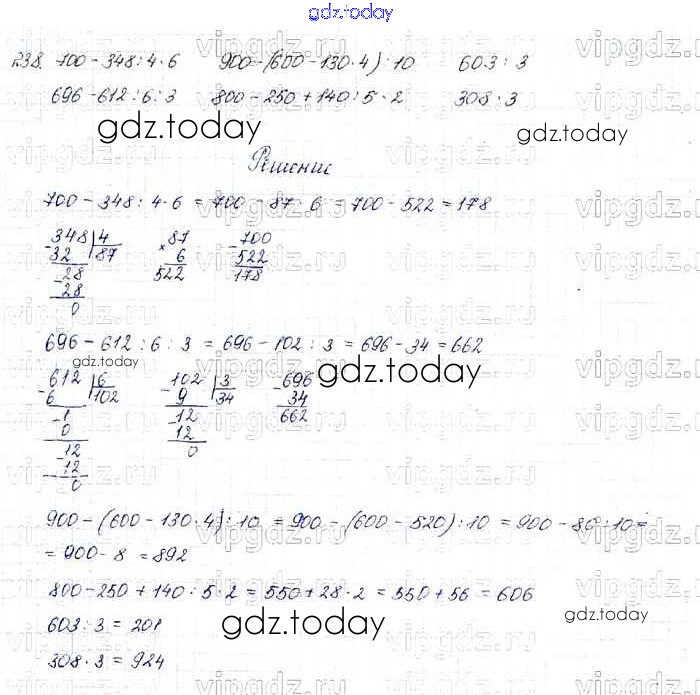 gdz.today
238. 700 - 348 : 4 · 6   900 - (600 - 130 · 4) : 10   603 : 3
696 - 612 : 6 : 3   800 - 250 + 140 : 5 · 2   308 · 3
gdz.today   gdz.today
Решение
700 - 348 : 4 · 6 = 700 - 87 · 6 = 700 - 522 = 178
- 348 | 4   × 87   - 700
32   87   6   522
- 28   522   178
28
0
696 - 612 : 6 : 3 = 696 - 102 : 3 = 696 - 34 = 662
gdz.today   gdz.today
- 612 | 6   - 102 | 3   - 696
6   102   9   34   34
- 1   - 12   662
0   12
- 12   0
12
0
900 - (600 - 130 · 4) : 10 = 900 - (600 - 520) : 10 = 900 - 80 : 10 =
= 900 - 8 = 892
800 - 250 + 140 : 5 · 2 = 550 + 28 · 2 = 550 + 56 = 606
603 : 3 = 201
gdz.today   gdz.today
308 · 3 = 924
vipgdz.ru